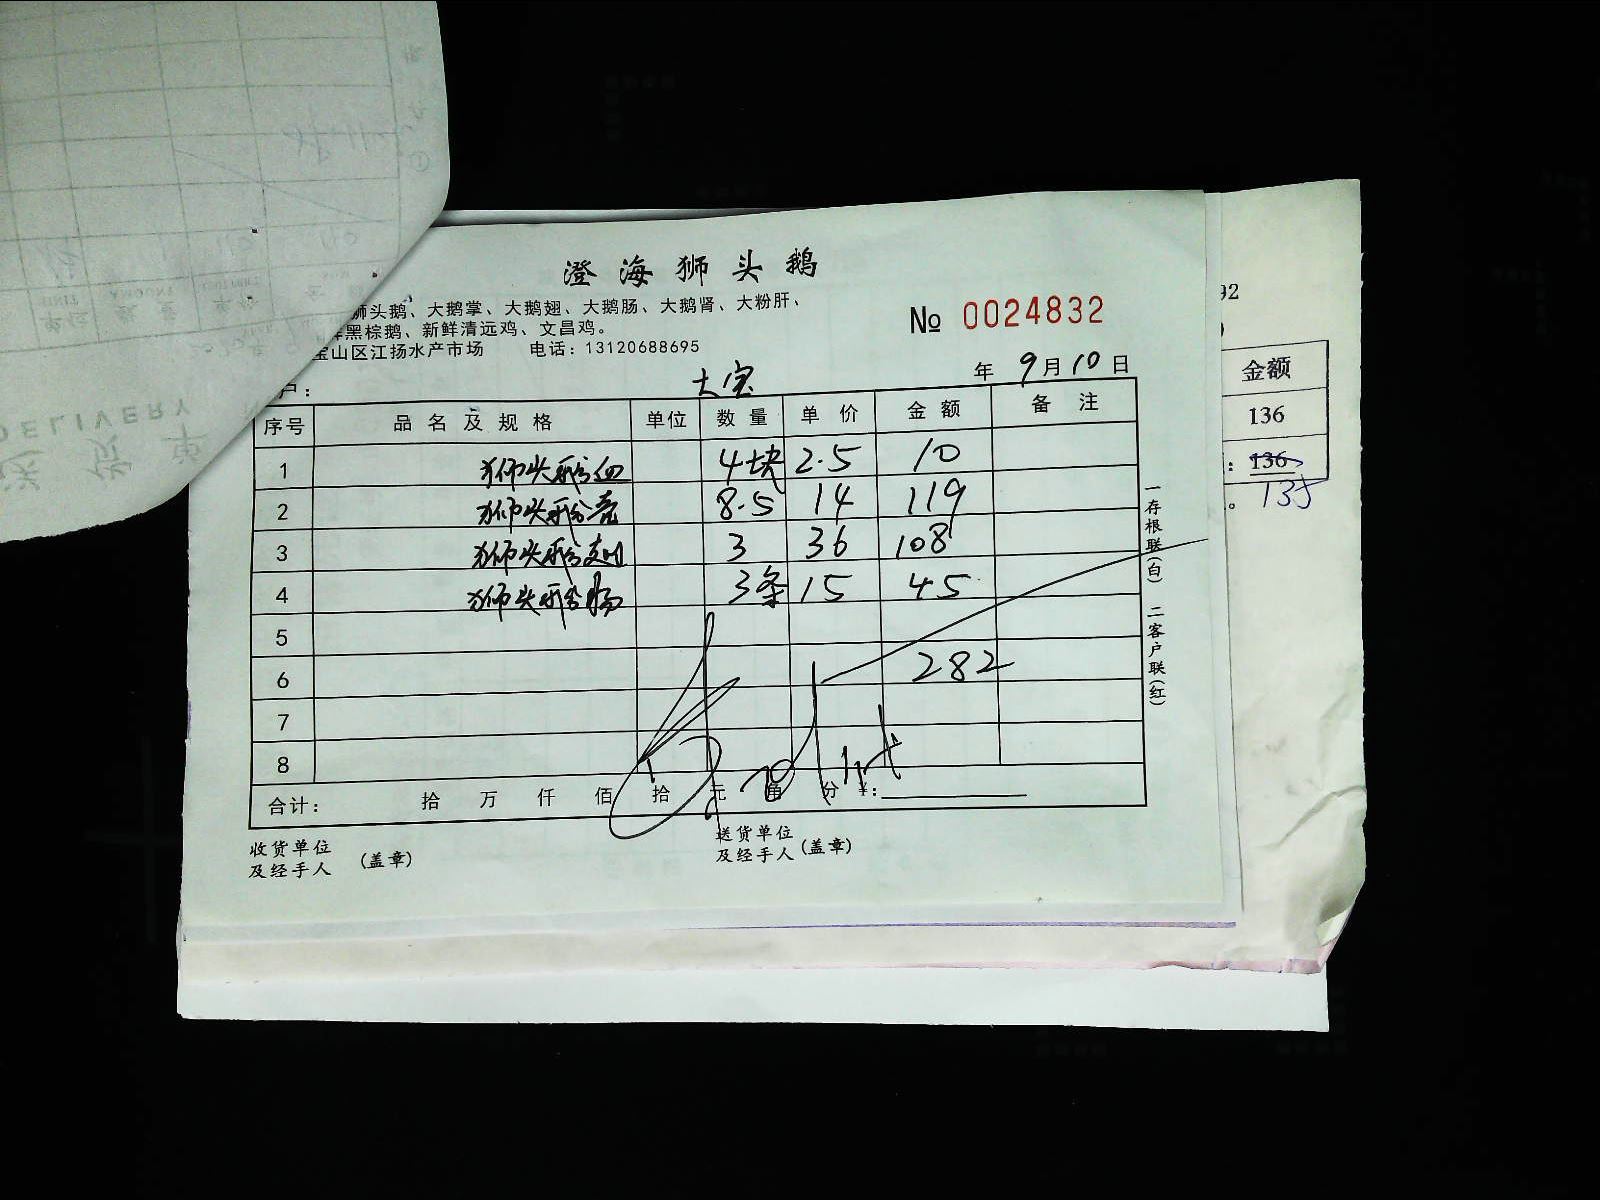 澄海狮头鹅
狮头鹅、大鹅掌、大鹅翅、大鹅肠、大鹅肾、大粉肝、
黑棕鹅、新鲜清远鸡、文昌鸡。
宝山区江扬水产市场 电话：13120688695
№ 0024832
年 9月10日
户： 大宝
序号 品名及规格 单位 数量 单价 金额 备注
1 狮头鹅血 4块 2.5 10
2 狮头鹅壳 8.5 14 119
3 狮头鹅 3 36 108
4 狮头鹅肠 3条 15 45
5
6 282
7
8
合计： 拾 万 仟 佰 拾 元 角 分 ¥：
收货单位及经手人 (盖章)
送货单位及经手人 (盖章)
一存根联(白) 二客户联(红)
92
金额
136
: 136
135
DELIVERY
送货单